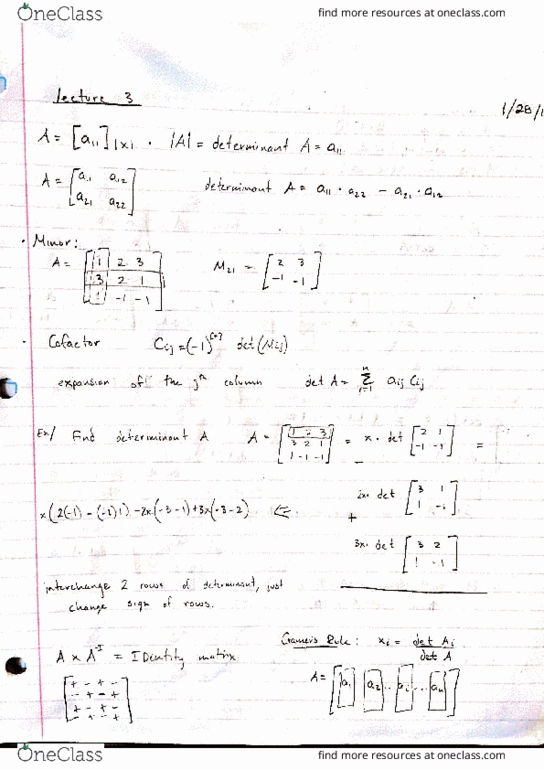 OneClass find more resources at oneclass.com
lecture 3
1/28/1
A = [a11]1x1 . |A| = determinant A = a11
A = [a11 a12
a21 a22] determinant A = a11 · a22 - a21 · a12
· Minor:
A = [1 2 3
3 2 1
1 -1 -1] M21 = [2 3
-1 -1]
· Cofactor Cij = (-1)^i+j det (Mij)
expansion of the jth column det A = Σ aij Cij
Ex/ Find determinant A A = [1 2 3
3 2 1
1 -1 -1] = x · det [2 1
-1 -1] =
2x · det [3 1
1 -1]
x(2(-1) - (-1)1) - 2x(-3-1) + 3x(-3-2) ⇐
+
3x · det [3 2
1 -1]
interchange 2 rows of determinant, just
change sign of rows.
Cramer's Rule: xi = det Ai / det A
A x A^I = IDentity matrix
A = [a1 a2 .. ai ... an]
[+ - + -
- + - +
+ - + -
- + - +]
OneClass find more resources at oneclass.com